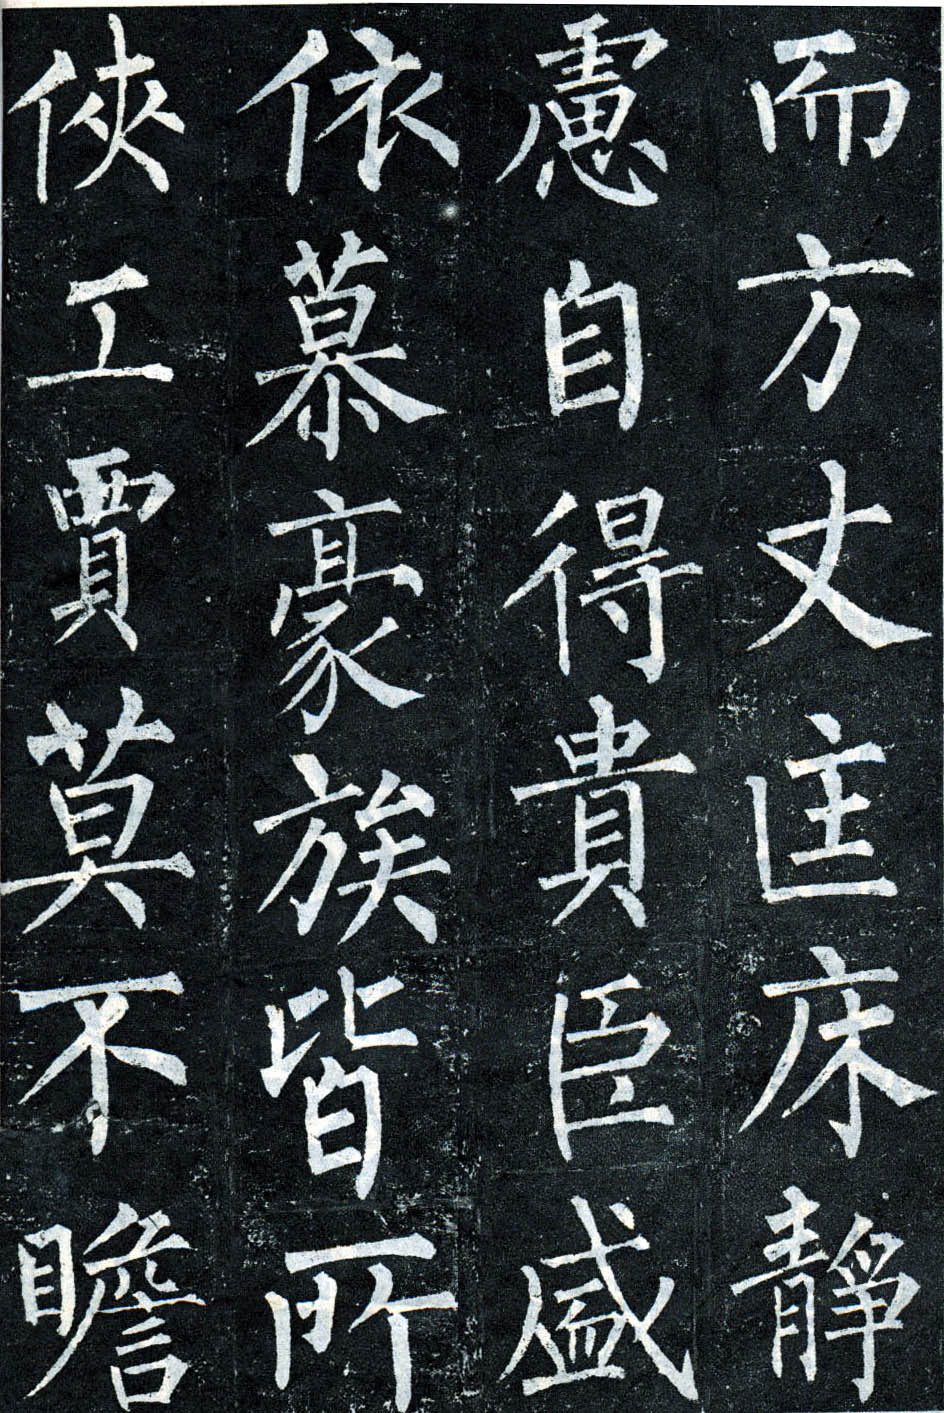 而方丈匡床静
慮自得貴臣盛
依慕豪族皆所
俠工賈莫不瞻